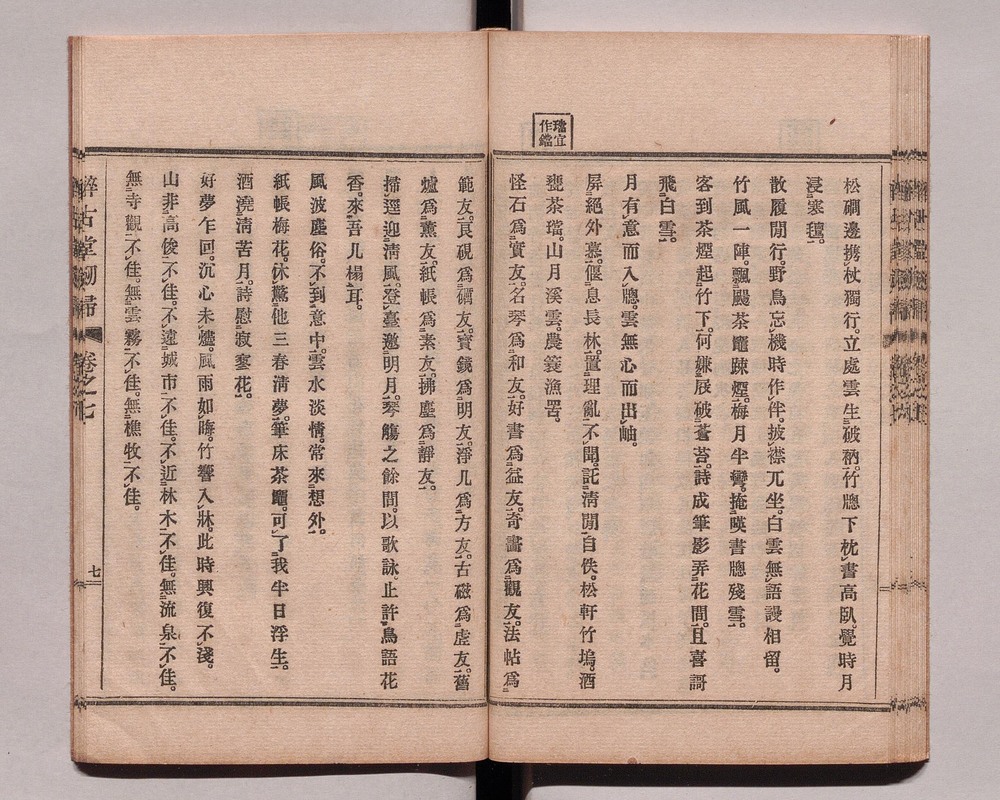 璫宜
作鐺
松磵邊携杖獨行。立處雲生破衲。竹牕下枕書高臥。覺時月
浸寒氊。
散履閒行。野鳥忘機時作伴。披襟兀坐。白雲無語謾相留。
竹風一陣。飄颺茶竈踈煙。梅月半彎。掩暎書牕殘雪。
客到茶煙起竹下。何嫌屐破蒼苔。詩成筆影弄花間。且喜謌
飛白雪。
月有意而入牕。雲無心而出岫。
屏絕外慕。偃息長林。置理亂不聞。託淸閒自佚。松軒竹塢。酒
甕茶璫。山月溪雲。農簑漁罟。
怪石爲實友。名琴爲和友。好書爲益友。奇畵爲觀友。法帖爲
範友。良硯爲礪友。寶鏡爲明友。淨几爲方友。古磁爲虛友。舊
爐爲薰友。紙帳爲素友。拂塵爲靜友。
掃逕迎淸風。登臺邀明月。琴觴之餘。間以歌詠。止許鳥語花
香。來吾几榻耳。
風波塵俗。不到意中。雲水淡情。常來想外。
紙帳梅花。休驚他三春淸夢。筆床茶竈。可了我半日浮生。
酒澆淸苦月。詩慰寂寥花。
好夢乍回。沉心未燼。風雨如晦。竹響入牀。此時興復不淺。
山非高俊不佳。不遠城市不佳。不近林木不佳。無流泉不佳。
無寺觀不佳。無雲霧不佳。無樵牧不佳。
醉古堂劒掃 卷之七
七